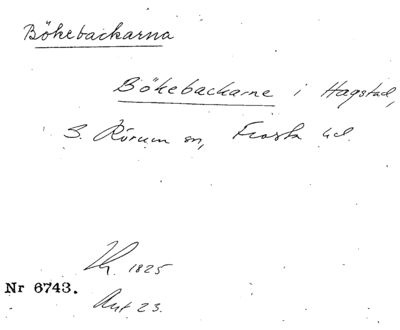 Bökebackarna
Bökebackarne i Hagstad,
S. Rörum sn, Frosta hd.
1825
Nr 6743.
Akt 23.